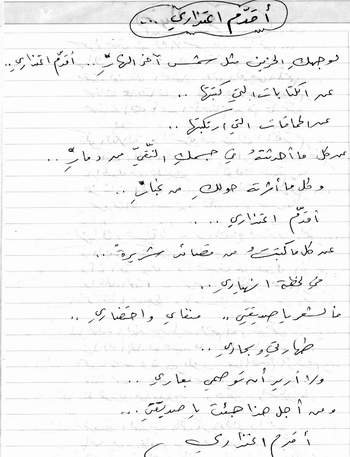 أقدّم اعتذاري ...
لوجهكِ الحزين مثل شمس آخر النهارِ ... أقدّم اعتذاري ..
عن الكتابات التي كتبتُها ..
عن الحماقات التي ارتكبتُها ..
عن كل ما أحدثتهُ في جسمكِ النّقيّ من دمارِ ..
وكل ما أثرته حولكِ من غبارِ ..
أقدّم اعتذاري ...
عن كل ما كتبتُ من قصائد شريرةٍ ..
في لحظة انهياري ...
فالشعر يا صديقتي .. منفاي واحتضاري ..
طهارتي وعاري ..
ولا أريد أن توصمي بعاري ..
ومن أجل هذا جئت يا صديقتي ...
أقدم اعتذاري